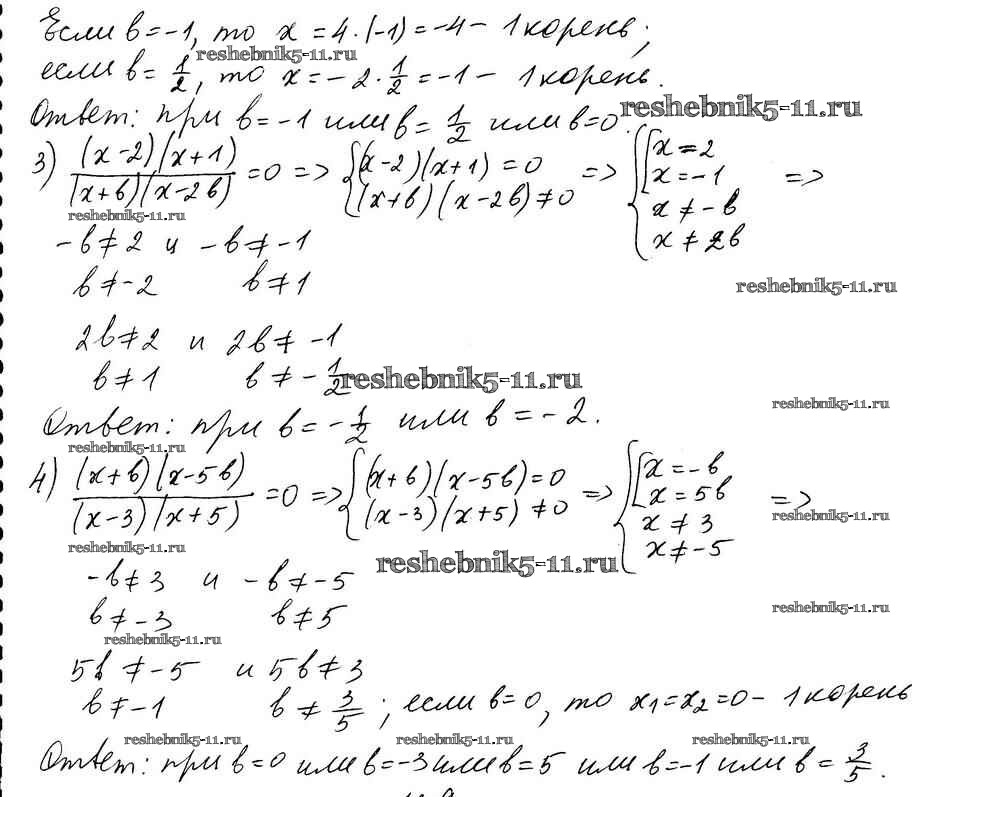 Если b = -1, то x = 4·(-1) = -4 – 1 корень;
reshebnik5-11.ru
если b = 1/2, то x = -2·1/2 = -1 – 1 корень.
Ответ: при b = -1 или b = 1/2 или b = 0.
reshebnik5-11.ru
3) (x-2)(x+1)/(x+b)(x-2b) = 0 => {(x-2)(x+1) = 0 (x+b)(x-2b) ≠ 0 => {[x = 2 x = -1 x ≠ -b x ≠ 2b =>
reshebnik5-11.ru
-b ≠ 2 и -b ≠ -1
b ≠ -2 b ≠ 1
reshebnik5-11.ru
2b ≠ 2 и 2b ≠ -1
b ≠ 1 b ≠ -1/2
reshebnik5-11.ru
reshebnik5-11.ru
Ответ: при b = -1/2 или b = -2.
reshebnik5-11.ru
4) (x+b)(x-5b)/(x-3)(x+5) = 0 => {(x+b)(x-5b) = 0 (x-3)(x+5) ≠ 0 => {[x = -b x = 5b x ≠ 3 x ≠ -5 =>
reshebnik5-11.ru
reshebnik5-11.ru
reshebnik5-11.ru
-b ≠ 3 и -b ≠ -5
b ≠ -3 b ≠ 5
reshebnik5-11.ru
reshebnik5-11.ru
5b ≠ -5 и 5b ≠ 3
b ≠ -1 b ≠ 3/5; если b = 0, то x₁ = x₂ = 0 – 1 корень
reshebnik5-11.ru reshebnik5-11.ru reshebnik5-11.ru
Ответ: при b = 0 или b = -3 или b = 5 или b = -1 или b = 3/5.